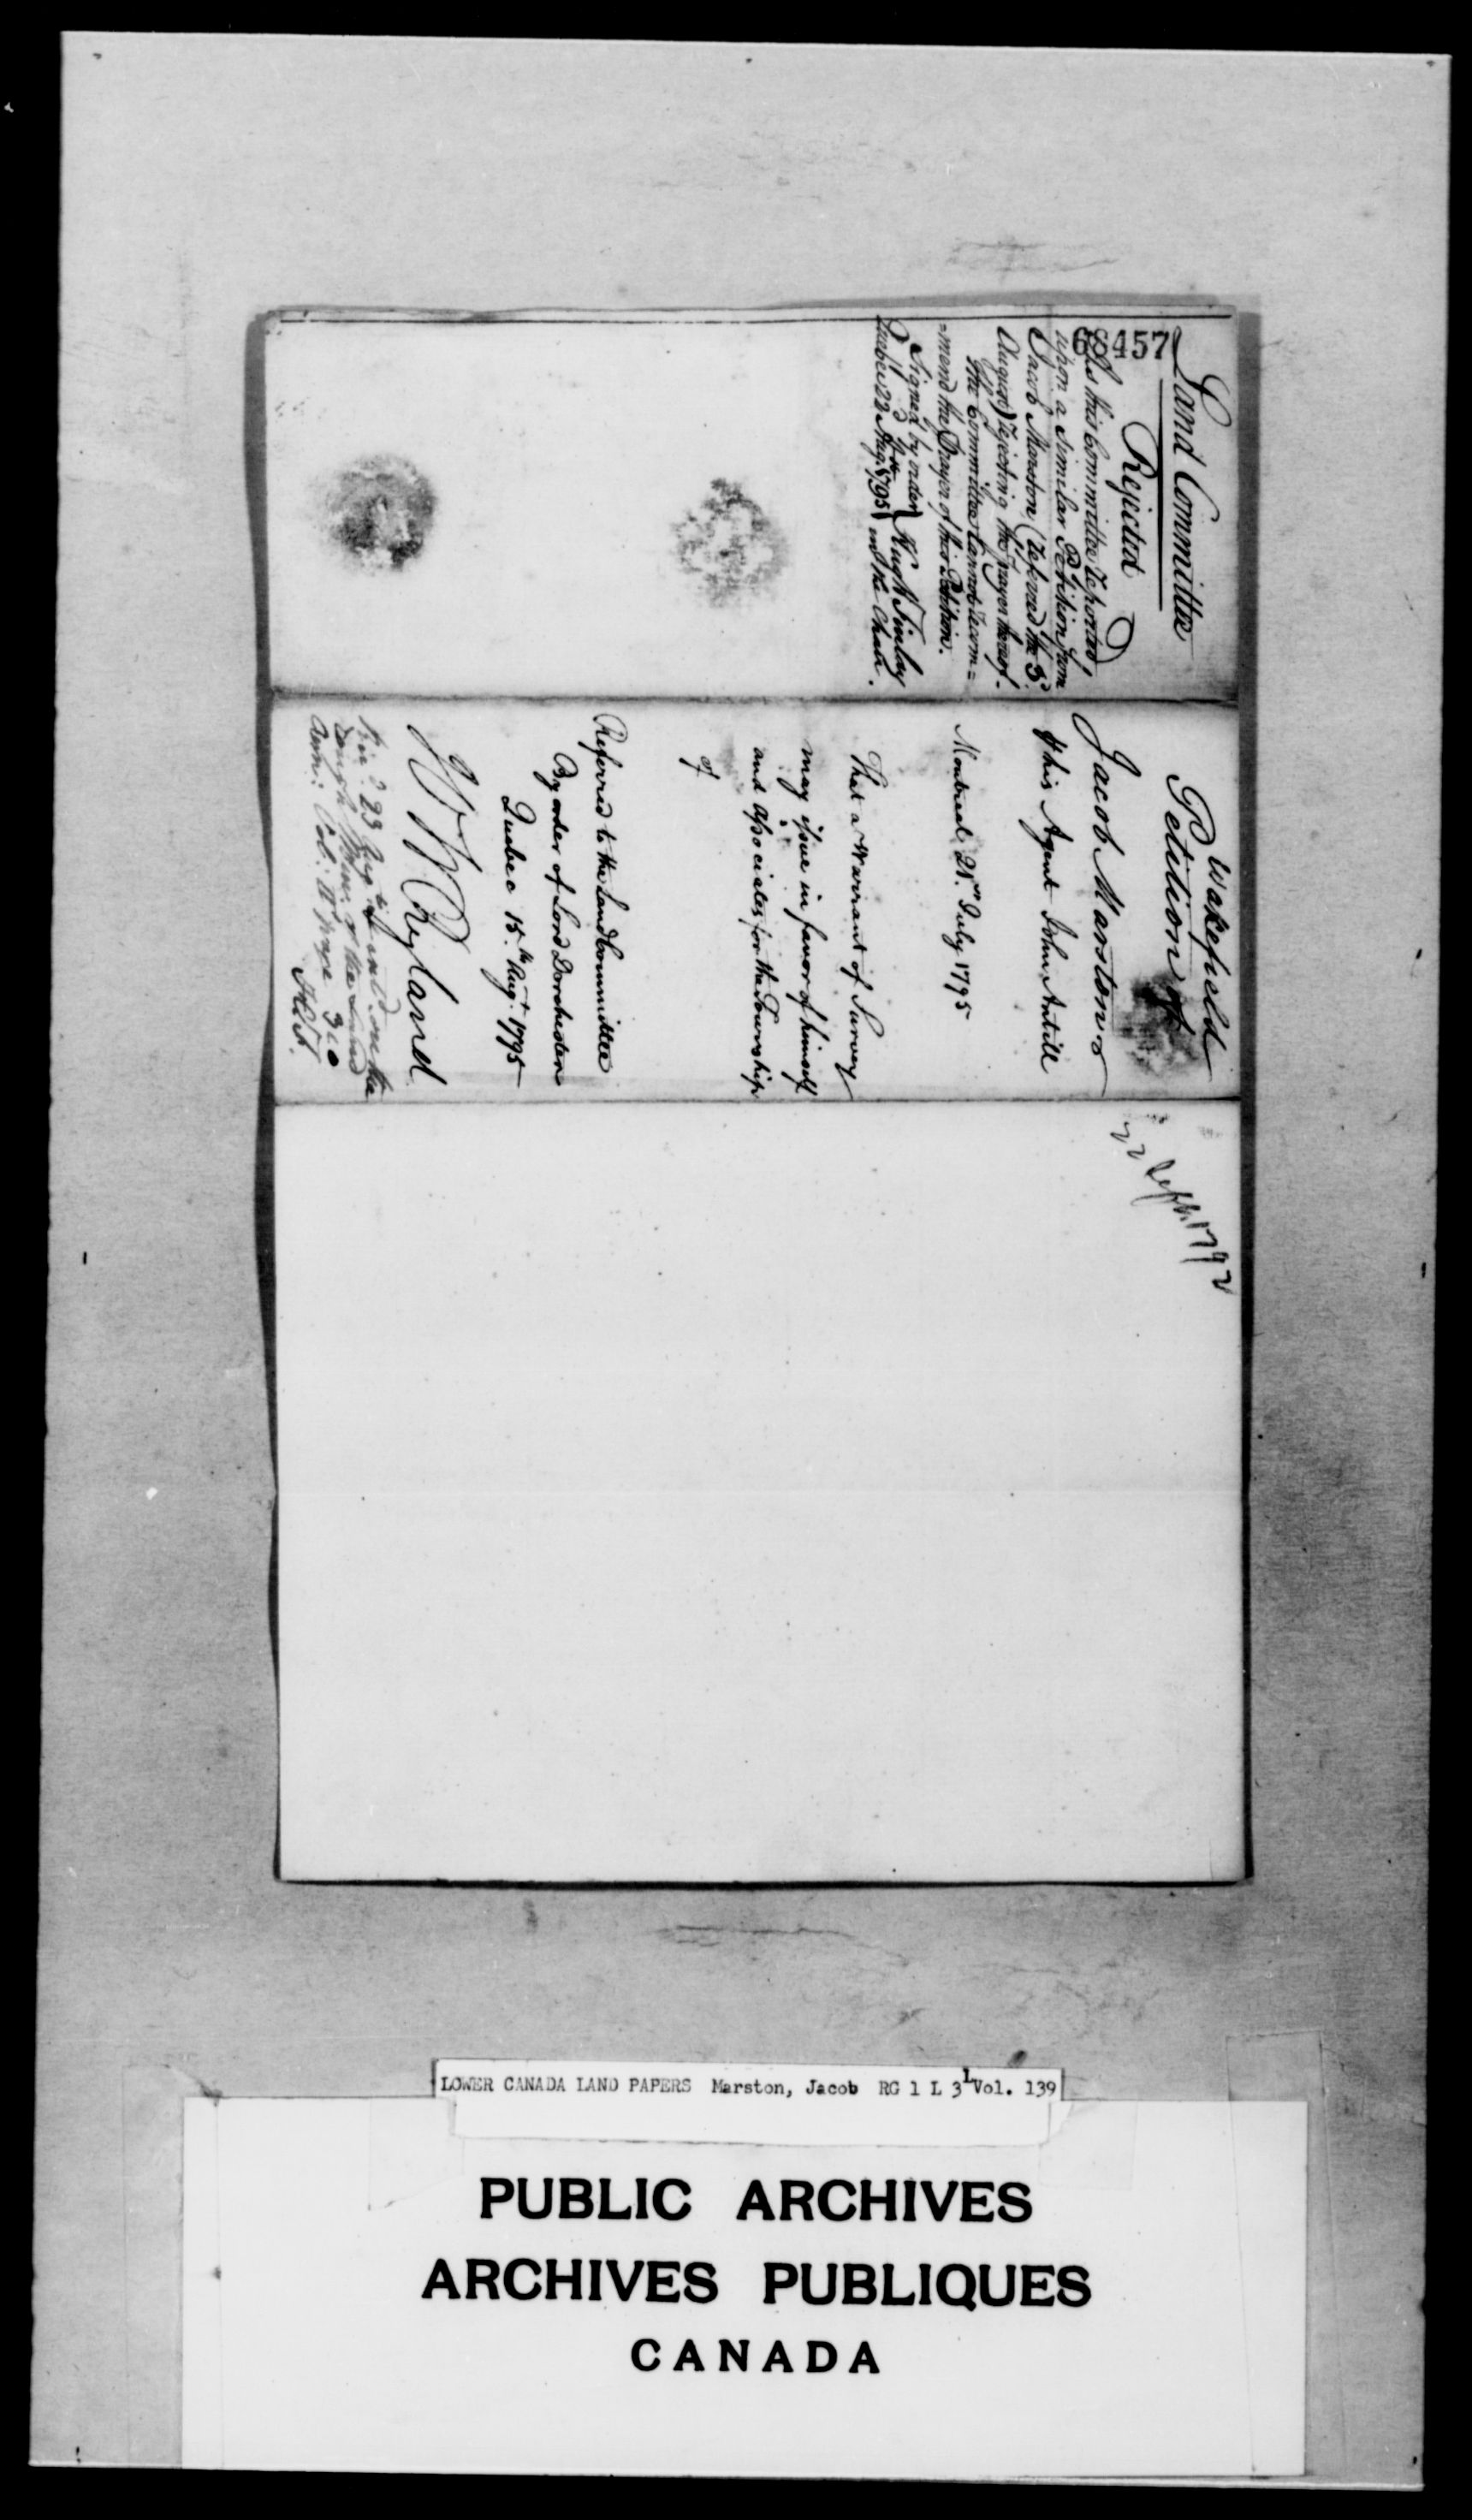 68457
Land Committee
Rejected
As this Committee reported
upon a similar Petition from
Jacob Marston (referred the 3d
August) rejecting the prayer thereof.
The Committee cannot recom=
=mend the Prayer of this Petition.
Signed by order } Hugh Finlay
Quebec 22 Aug. 1795 } in the Chair.
Wakefield
Petition of
Jacob Marston
his Agent John Antill
Montreal 21st July 1795
That a Warrant of Survey
may issue in favor of himself
and Associates for the Township
of
Referred to the Land Committee
By order of Lord Dorchester
Quebec 15th Augt. 1795
HW Ryland
23 Aug
the Land
page 310
22 Septr. 1792
LOWER CANADA LAND PAPERS Marston, Jacob RG 1 L 3L Vol. 139
PUBLIC ARCHIVES
ARCHIVES PUBLIQUES
CANADA